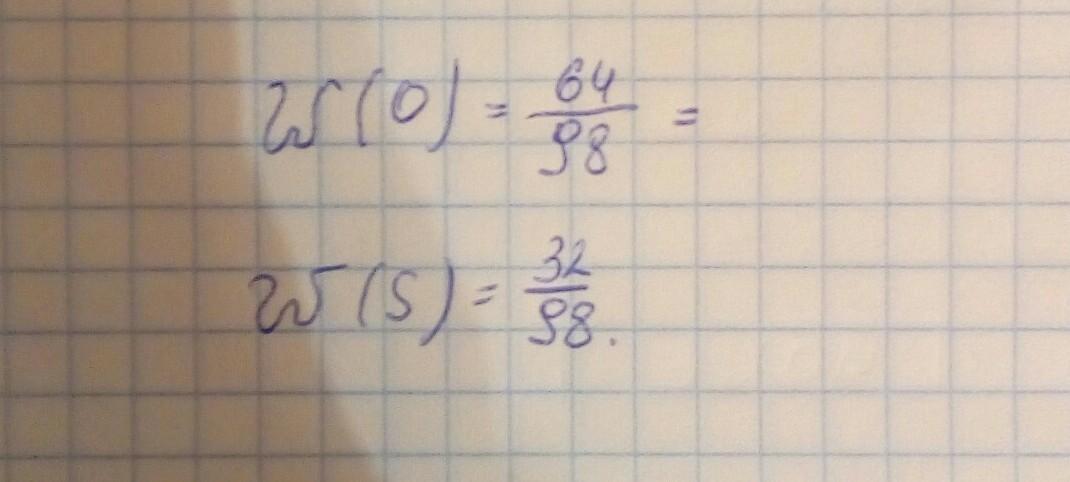 W(O) = 64/98 =
W(S) = 32/98.